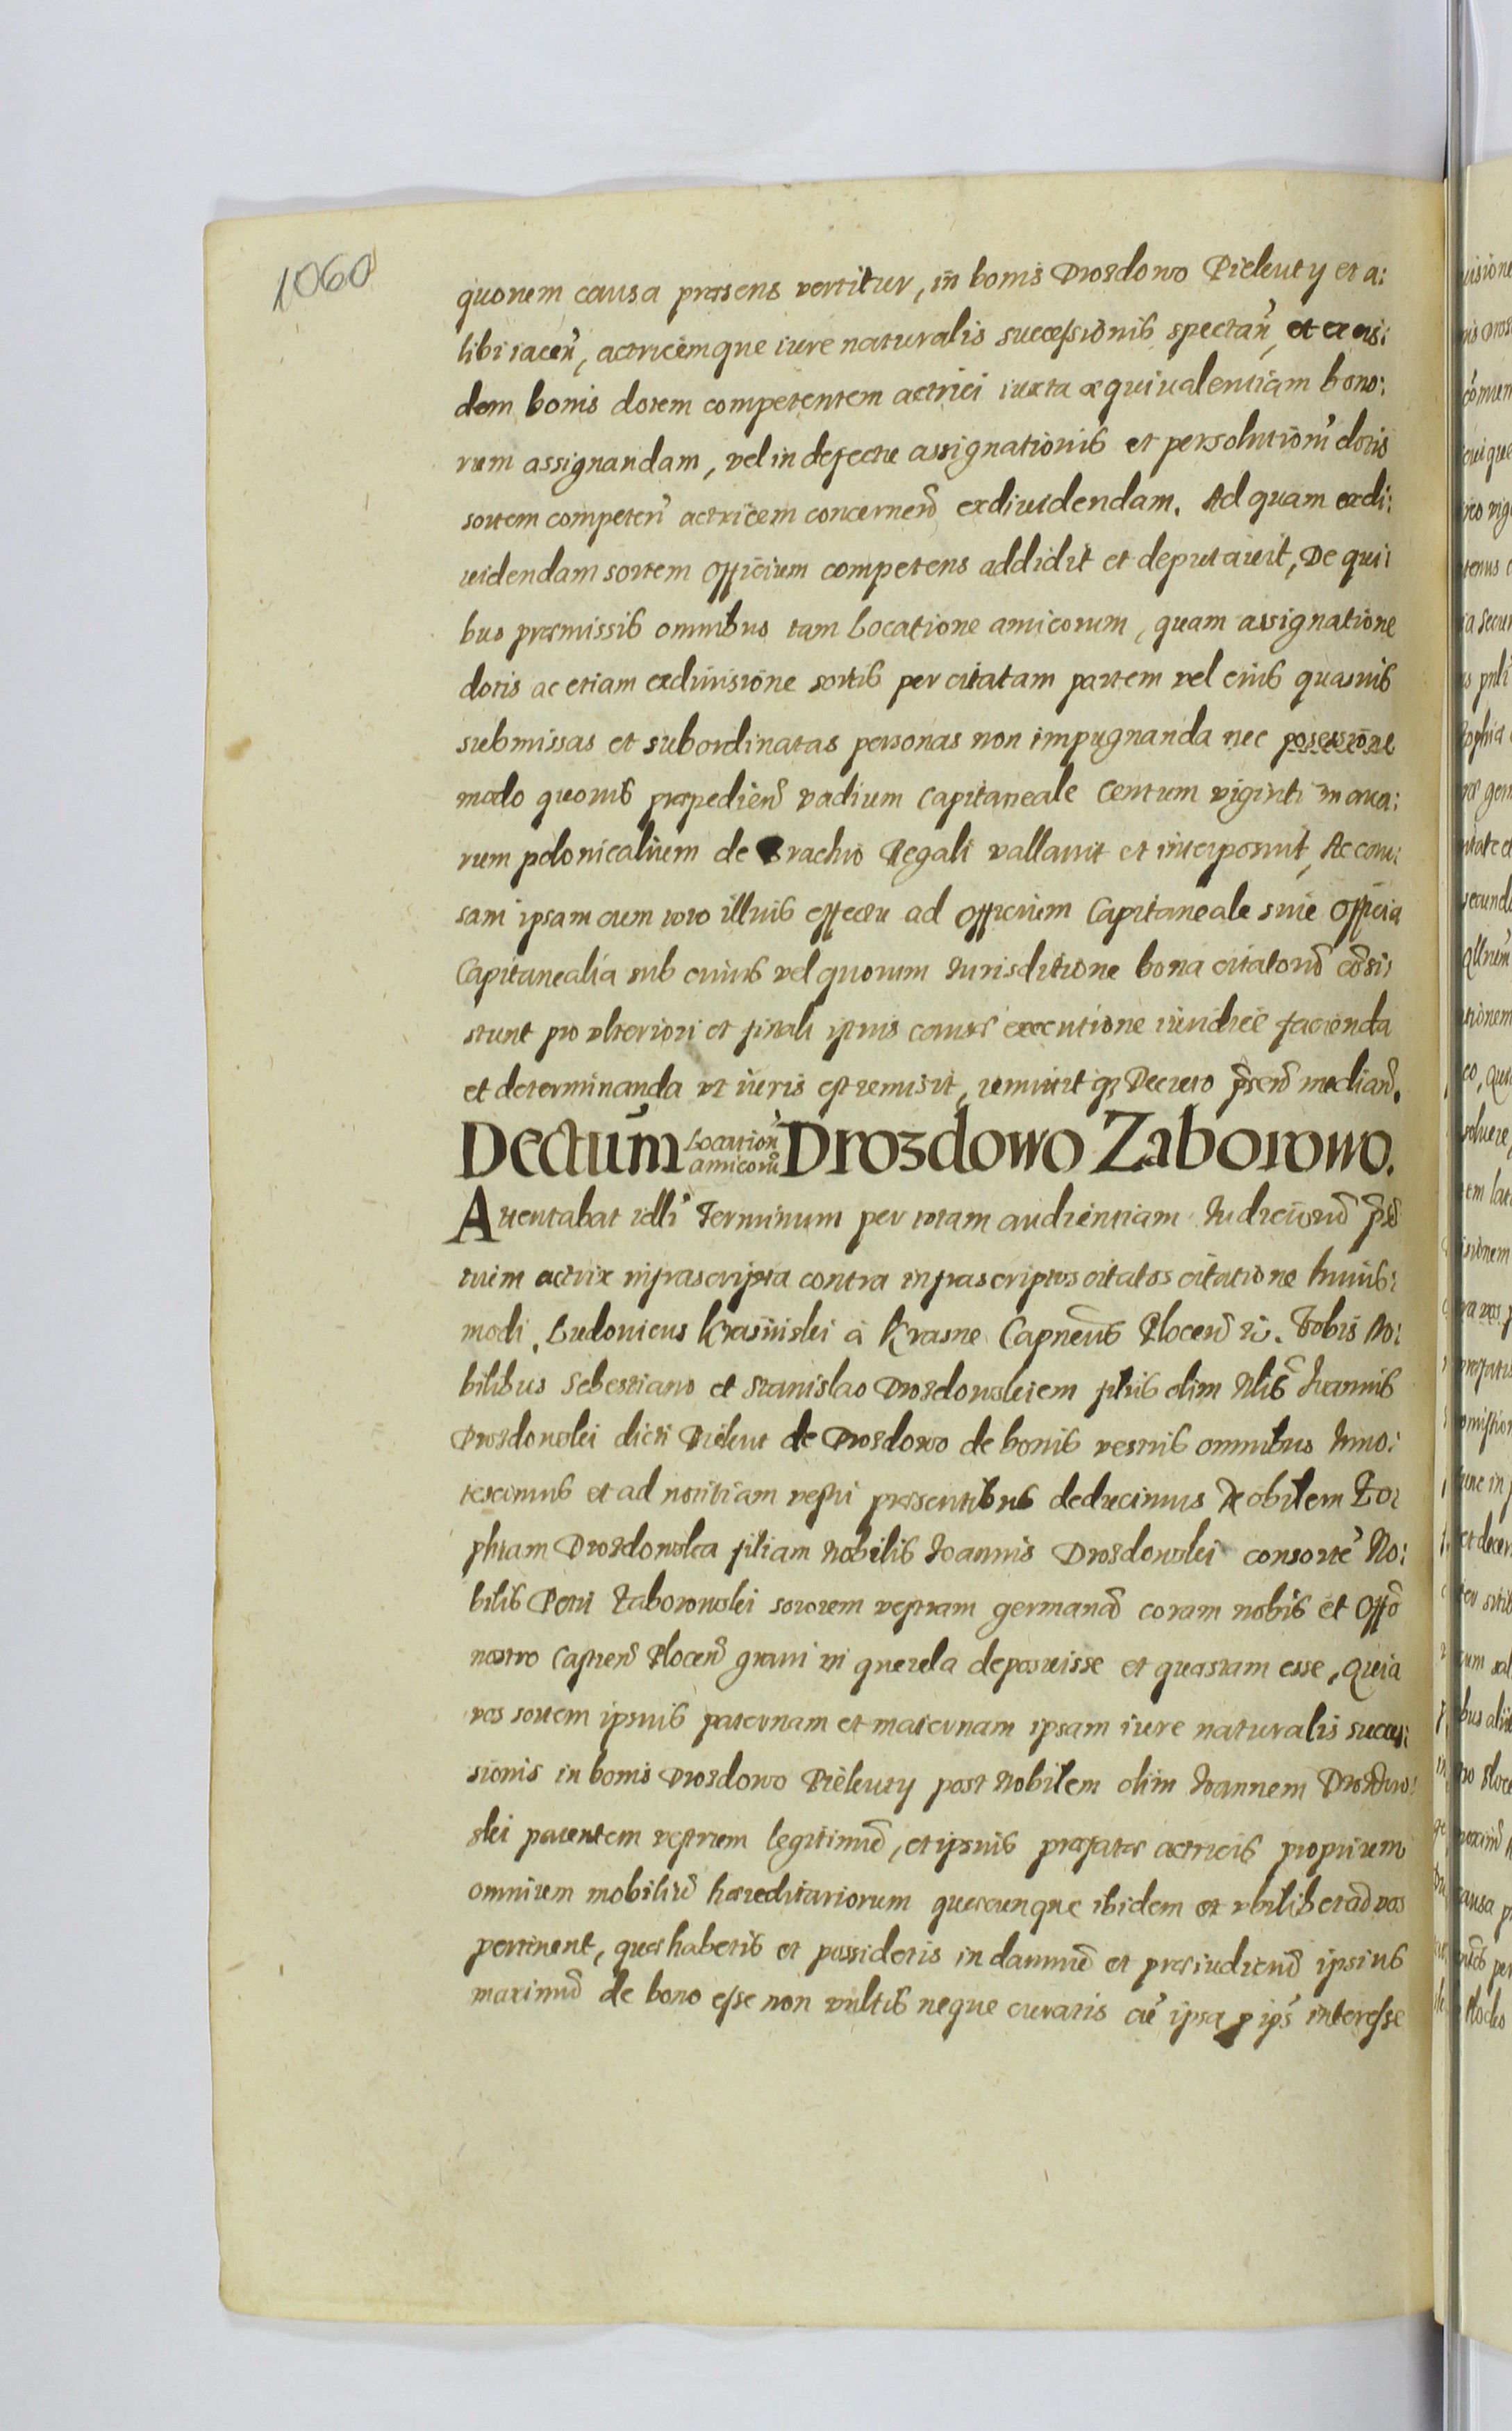 1060
quonem causa præsens vertitur, in bonis Drozdowo Pieleuty et a:
libi iaceñ, actricemque iure naturalis successionis spectañ, et ex eis:
dem bonis dotem competentem actrici iuxta æquiualentiam bono:
rum assignandam, vel in defectu assignationis et persolutioni' dotis
sortem competeñ actricem concerneñ exdiuidendam. Ad quam exdi:
uidendam sortem officium competens addidit et deputauit, De qui:
bus præmissis omnibus tam Locatione amicorum, quam assignatione
dotis ac etiam exdiuisione sortis per citatam partem vel eius quasuis
submissas et subordinatas personas non impugnanda nec possessione
modo quouis præpedieñ vadium Capitaneale Centum viginti marca:
rum polonicalium de Brachio Regali vallauit et interposuit, Ac cau:
sam ipsam cum toto illius effectu ad officium Capitaneale siue officia
Capitanealia sub cuius vel quorum Jurisditione bona citatorū cōsi:
stunt pro vlteriori et finali istius causæ executione iuridicè facienda
et determinanda vt iuris est remisit, remittitq3 Decreto p̄señ mediañ.
Dectum Location' amicorū Drozdowo Zaborowo.
Attentabat idli' Terminum per totam audientiam Judiciorū p̄sē
tium actrix infrascripta contra infrascriptos citatos citatione huius:
modi. Ludouicus Krasinski à Krasne Capneus Plocen̄ &. Vobis No:
bilibus Sebestiano et Stanislao Drozdowskiem filiis olim Nlis Joannis
Drozdowski dicti Pieleut de Drozdowo de bonis vestris omnibus Inno:
tescimus et ad notitiam vestri præsentibus deducimus Nobilem Zo:
phiam Drozdowska filiam Nobilis Joannis Drozdowski consorte' No:
bilis Petri Zaborowski sororem vestram germanā coram nobis et Offō
nostro Castreñ Ploceñ graui in querela deposuisse et quæstam esse, quia
vos sortem ipsius paternam et maternam ipsam iure naturalis succes:
sionis in bonis Drozdowo Pieleuty post Nobilem olim Joannem Drozdow:
ski parentem vestrum legitimū, et ipsius præfatæ actricis proprium
omnium mobiliū hæreditariorum quæcunque ibidem et vbilibet ad vos
pertinent, quæ habetis et possidetis in damnū et præiudiciū ipsius
maximū de bono esse non vultis neque curatis cū ipsa p ips' interesse